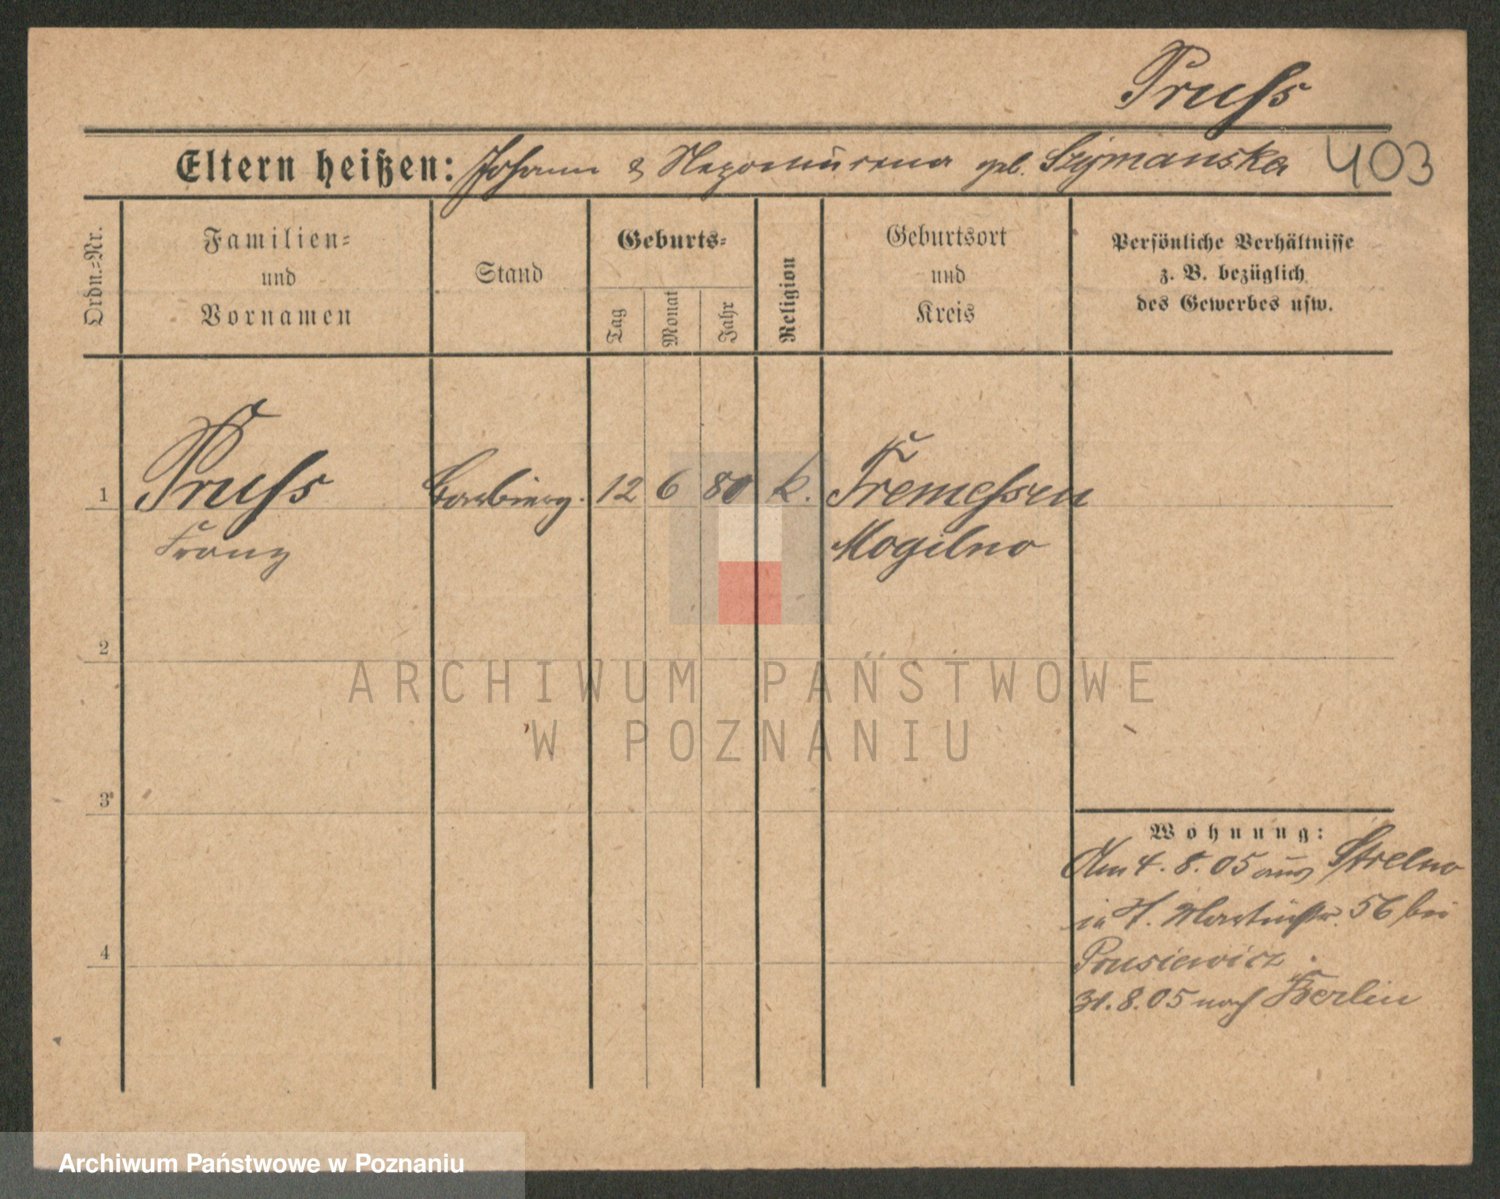 Pruſs
Eltern heißen: Johann & Nepomucena geb. Szymanska 403
Ordn.-Nr.
Familien-
und
Vornamen
Stand
Geburts-
Tag
Monat
Jahr
Religion
Geburtsort
und
Kreis
Persönliche Verhältnisse
z. B. bezüglich
des Gewerbes usw.
1 Pruſs Barbierg. 12 6 80 k. Tremeſsen
Franz Mogilno
2
3
4
Wohnung:
Am 4. 8. 05 aus Strelno
in St. Martinstr. 56 bei
31. 8. 05 nach Berlin
ARCHIWUM PAŃSTWOWE
W POZNANIU
Archiwum Państwowe w Poznaniu